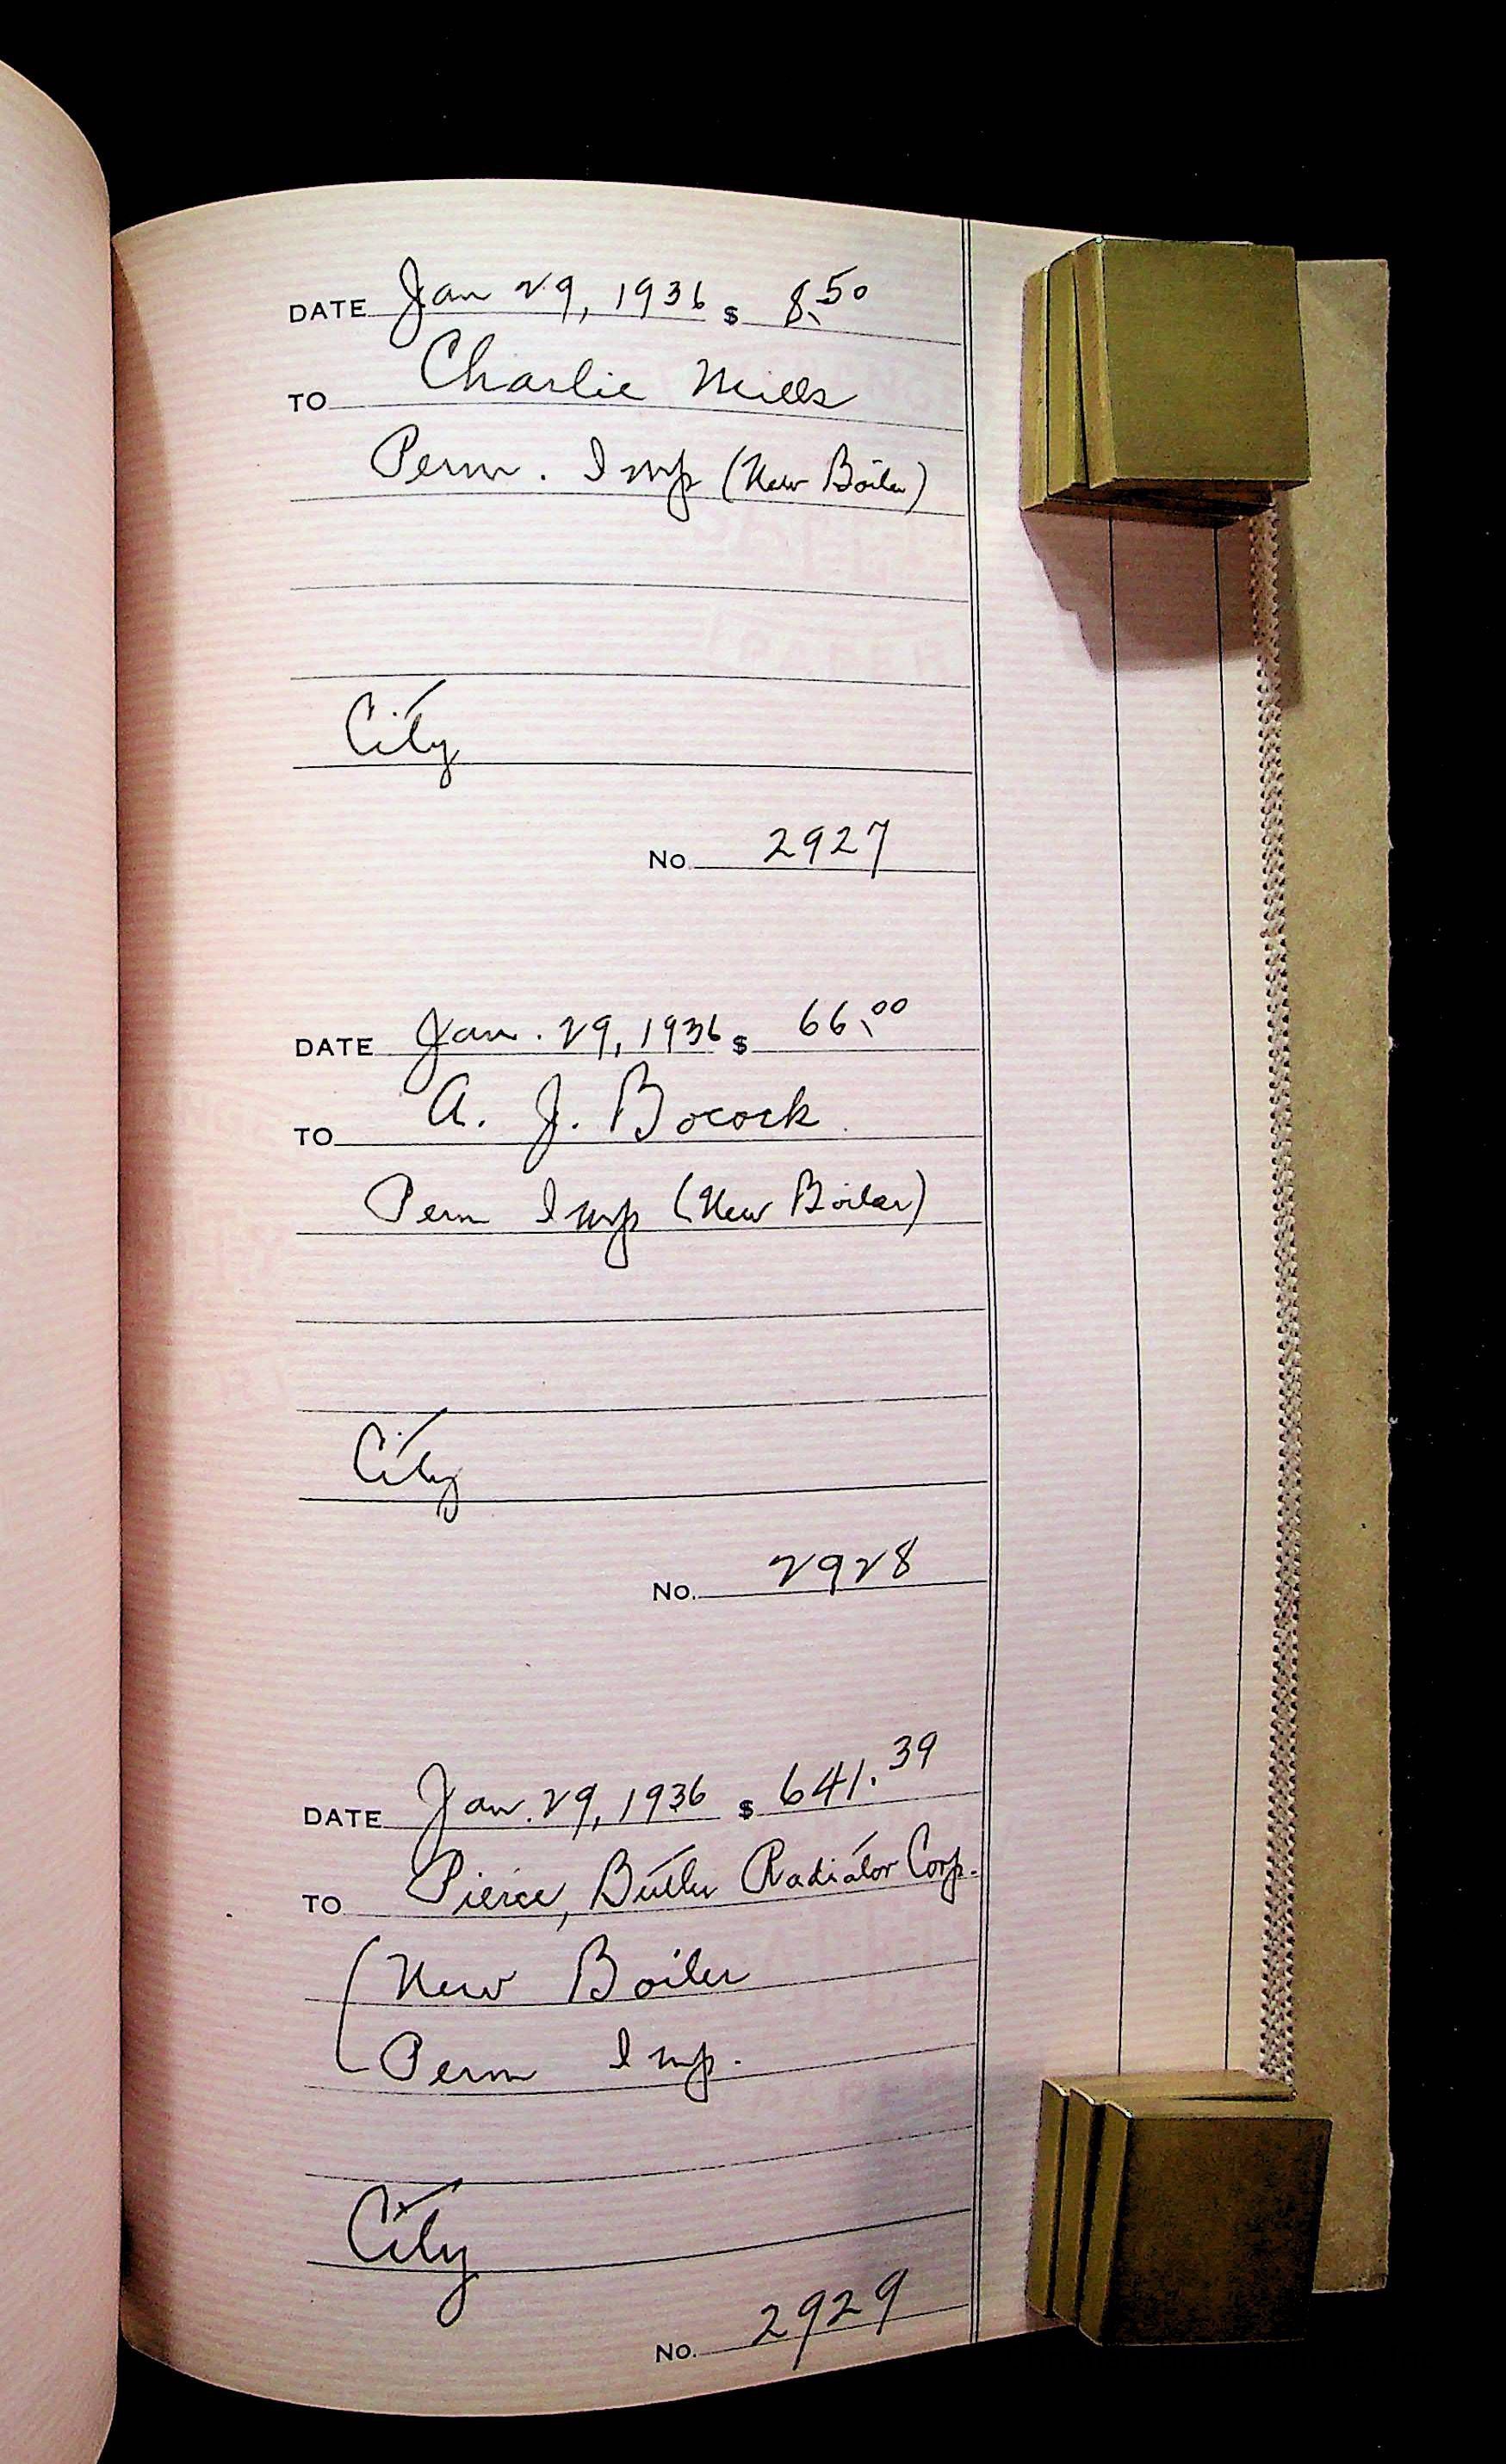 DATE Jan 29, 1936 $ 8.50
TO Charlie Mills
Perm. Imp (New Boiler)
City
No 2927
DATE Jan. 29, 1936 $ 66.00
TO A. J. Bocock
Perm Imp (New Boiler)
City
No. 2928
DATE Jan. 29, 1936 $ 641.39
TO Pierce, Butler Radiator Corp.
(New Boiler
Perm Imp.
City
No. 2929